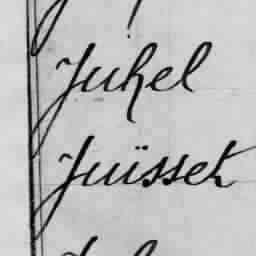 Juhel
Juïsset